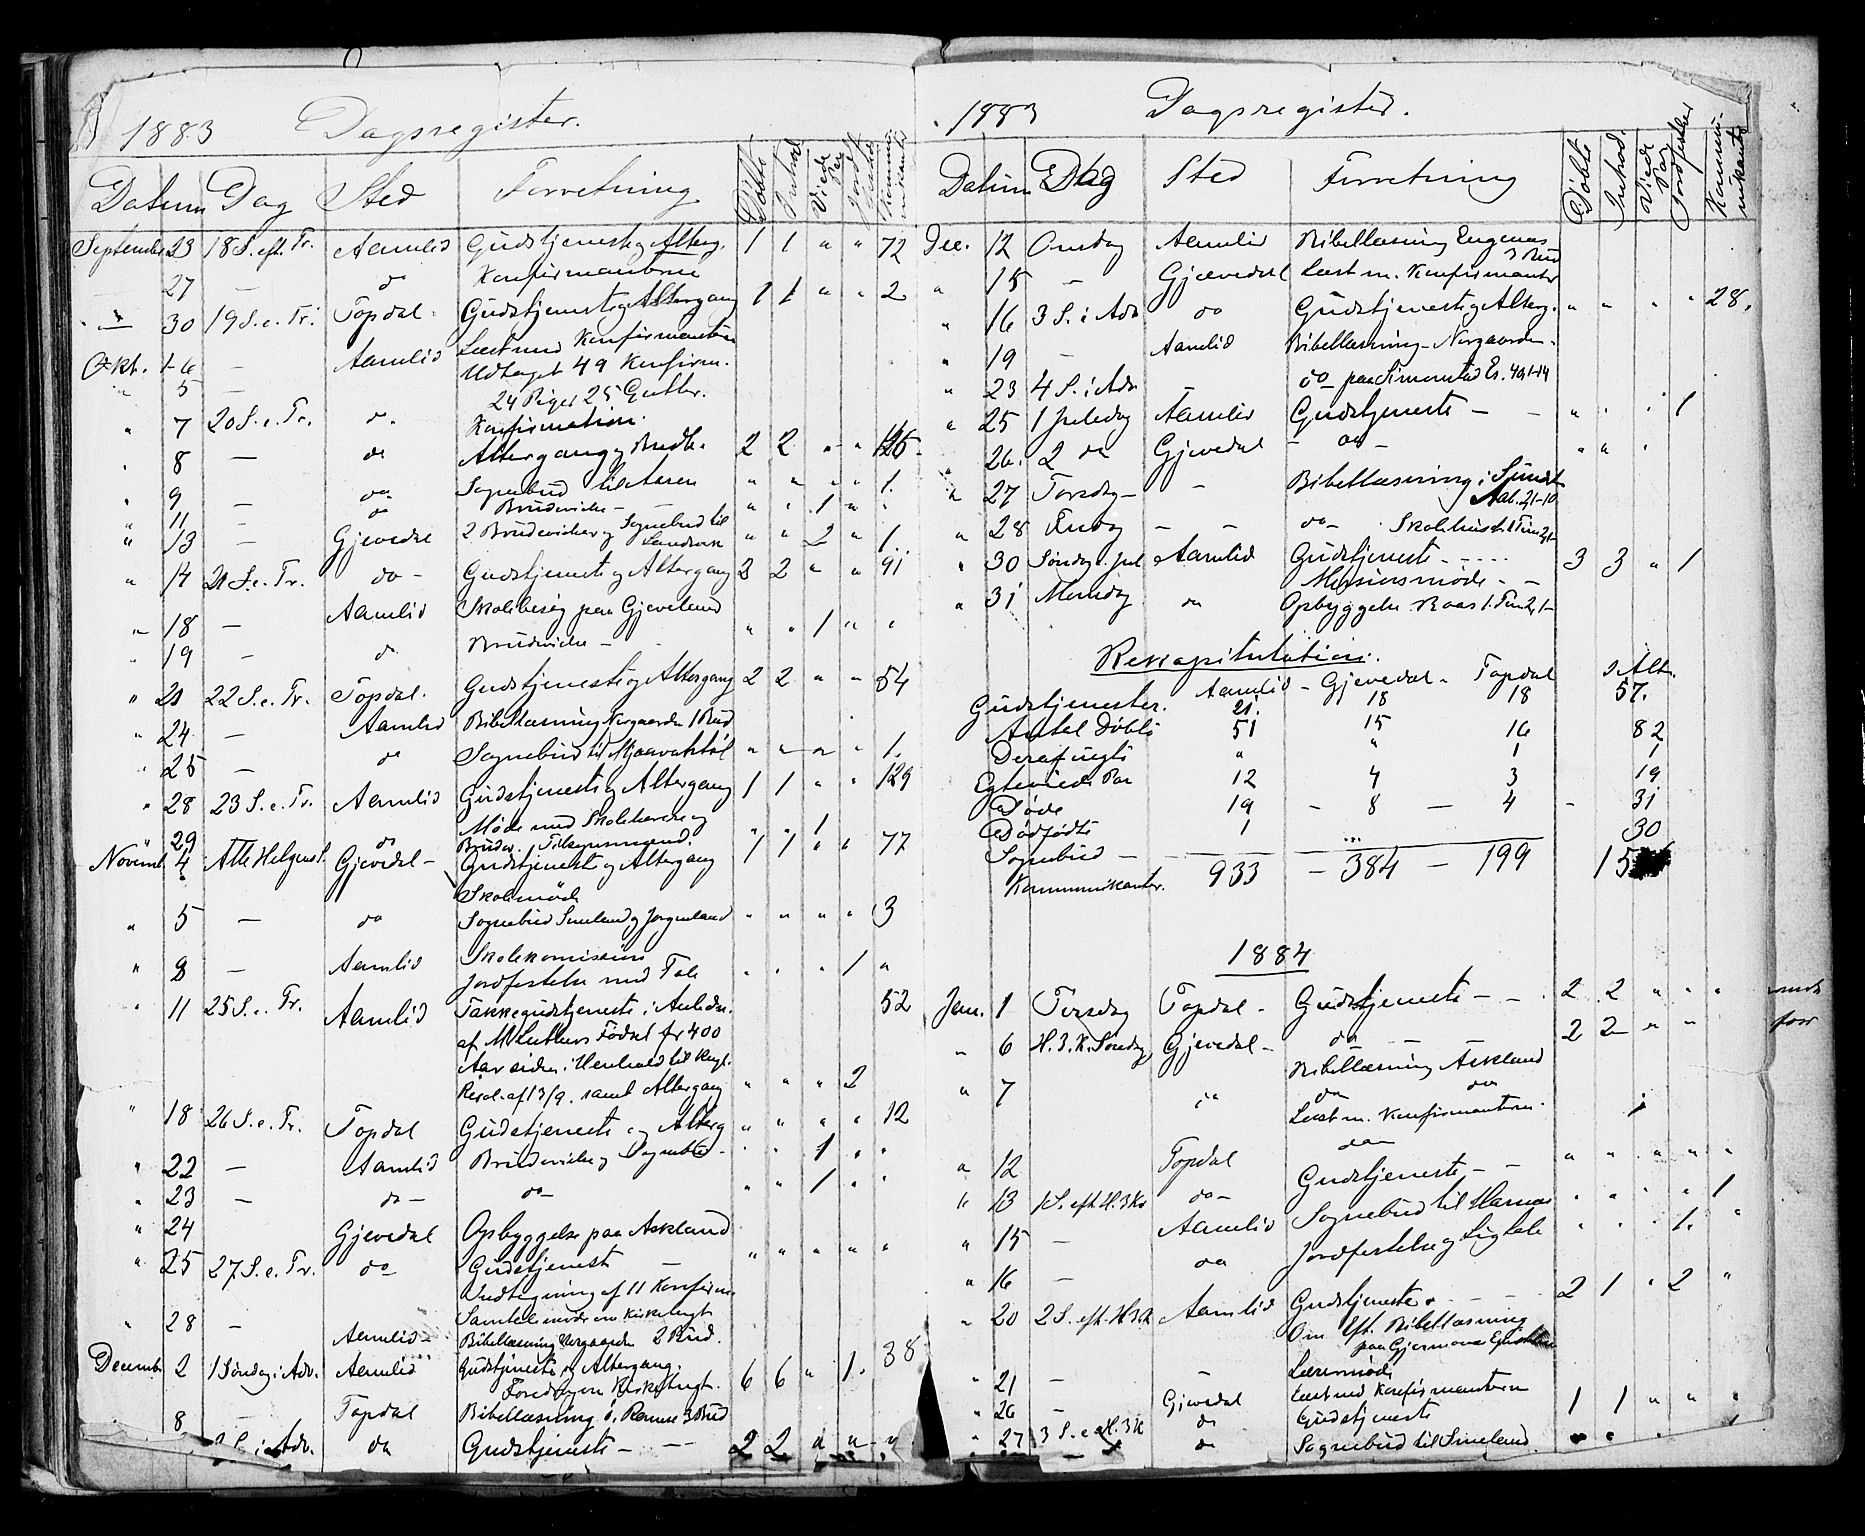 1883 Dagsregister.
Datum Dag Sted Forretning Døbte Introd. Viede Par
September 23 18 S. eft. Tr. Aamlid Gudstjeneste og Alterg. 1 1 " " 72
27 — do Konfirmanterne
— 30 19 S. e. Tr. Topdal. Gudstjeneste og Altergang 1 1 " " 2
Okt. 1-6 — Aamlid Læst med Konfirmanterne
" 5 — Udtaget 49 Konfirm.
24 Piger 25 Gutter.
" 7 20 S. e. Tr. do. Konfirmation.
" 8 — do Altergang og 2 2 " "
" 9 — do Sognebud til " " " " 1.
" 11 — do Brudevielse — — " " 1 " "
" 13 — Gjevedal 2 Brudevielser og Sognebud til " " 2 " 1.
" 14 21 S. e. Tr. do — Gudstjeneste og Altergang 2 2 " " 91
" 18 — Aamlid Skolebesøg paa
" 19 — do Brudevielse — " " 1 " "
" 21 22 S. e. Tr. Topdal. Gudstjeneste og Altergang 2 2 " " 54
" 24 — Aamlid Bibellæsning
" 25 — do Sognebud til " " " " 1.
" 28 23 S. e. Tr. Aamlid Gudstjeneste og Altergang 1 1 " " 129
29 do Møde med Skolelærere og
Tilsynsmænd. " " 1
Novemb. 4 Alle Helgens f. Gjevedal — Gudstjeneste og Altergang 1 1 " " 77
Skolemøde
" 5 — do Sognebud Smeland og " " " " 3
" 8 — Aamlid Skolekomission
Jordfestelse med Tale " " " 1 "
" 11 25 S. e. Tr. Aamlid Takkegudstjeneste i Anledn. 52
af M Luthers Fødsel for 400
Aar siden i Henhold til Kngl.
Resol. af 13/9. samt Altergang " " " 2
" 18 26 S. e. Tr. Topdal Gudstjeneste og Alterg " " " " 12
" 22 — Aamlid Brudevielse og " " 1 " "
" 23 — do — do — " " 1 " "
" 24 Gjevedal Opbyggelse paa Askland
" 25 27 S. e. Tr. do Gudstjenest — " " " " "
Undtagning af 11 Konfirm
" 28 — Samtalemøde om Kirketugt
Aamlid — Bibellæsning 2 Bud.
Decemb. 2 1 Søndag i Adv. Aamlid Gudstjeneste og Altergang. 6 6 " 1. 38
Foredrag om Kirketugt.
8. — Topdal Bibellæsning 3 Bud
S. i Adv. do Gudstjeneste — — 2 2 " " "
1883 Dagsregister.
Datum Dag Sted Forretning Døbte Introd. Viede Par Jordfæstelse Kommunikanter
Dec. 12 Onsdag Aamlid Bibellæsning
" 15 — Gjævedal Læst m. Konfirmanter
" 16 3 S. i Adv do Gudstjeneste og Alterg. " " " " 28.
" 19 — Aamlid Bibellæsning —
" 23 4 S. i Adv — do — paa Simonstad Es. 40,1-14
" 25 1 Juledag Aamlid Gudstjeneste — — " " " 1
" 26. 2 do Gjevedal — do — " " "
" 27 Torsdag — — Bibellæsning i
" 28 Fredag — — do —
" 30 Søndag e. Jul Aamlid Gudstjeneste — 3 3 " 1
Missionsmøde — —
" 31 Mandag do Opbyggelse
Rekapitulation.
Aamlid — Gjevedal — Topdal I Alt.
Gudstjenester. 21. 18 18 57.
Antal Døbte 51 15 16 82
Deraf uegte " " 1 1
Egteviede Par 12 4 3 19
Døde 19 — 8 — 4 — 31
Dødfødte 1
Sognebud — 30
Kommunikanter. 933 — 384 — 199
1884
Jan. 1 Tirsdag Topdal — Gudstjeneste — — 2 2 " " "
" 6 H. 3. K. Søndag Gjevedal — do — — 2 2 " "
" 7 Bibellæsning Askland
do do
Læst m. Konfirmanterne.
" 12 Topdal do
" 13 1 S. eft H. 3 Ko do — Gudstjeneste — — " " " " "
" 15 — Aamlid Sognebud til " " " " 1
" 16 — do Jordfestelse og Ligtale " " " 1. "
" 20 2 S. eft. H 3 K Aamlid Gudstjeneste — 2 1 " 2 "
Om Eft. Bibellæsning
Lærermøde
" 21 —
" 26 — Gjevedal Læst med Konfirmanterne
" 27 3 S. e H. 3 K do Gudstjeneste 1 1 " " "
do Sognebud til Smeland